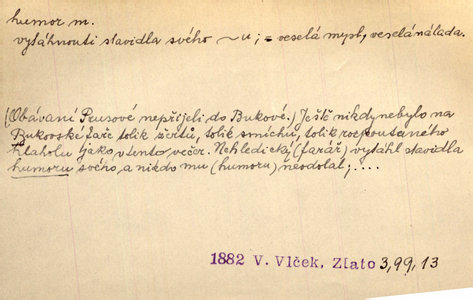 humor m.
vytáhnouti stavidla svého ~u; = veselá mysl, veselá nálada.
(Obávaní Prusové nepřijeli do Bukové.) Ještě nikdy nebylo na
Bukovské faře tolik žertů, tolik smíchu, tolik rozpoutaného
hlaholu jako v tento večer. Nehledický (farář) vytáhl stavidla
humoru svého, a nikdo mu (humoru) neodolal; ....
1882 V. Vlček, Zlato 3, 99, 13